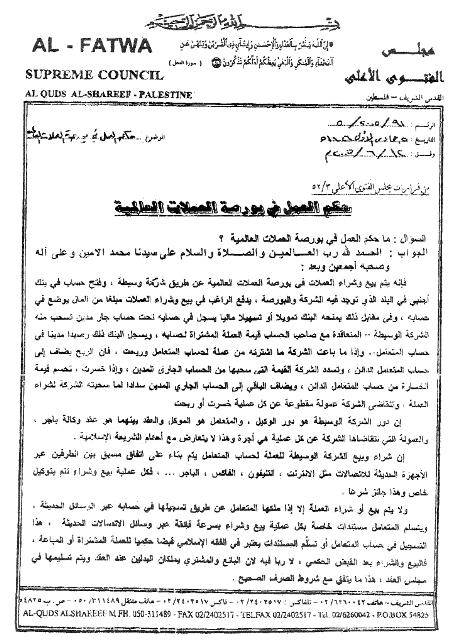 بسم الله الرحمن الرحيم
AL - FATWA
SUPREME COUNCIL
AL QUDS AL-SHAREEF - PALESTINE
﴿إن الله يأمر بالعدل والإحسان وإيتاء ذي القربى وينهى عن
الفحشاء والمنكر والبغي يعظكم لعلكم تذكرون﴾ (سورة النحل)
مجلس
الفتوى الأعلى
القدس الشريف - فلسطين
الرقم :
التاريخ :
وفق :
الموضوع :
من قرارات مجلس الفتوى الأعلى ٥٢/٣
حكم العمل في بورصة العملات العالمية
السؤال : ما حكم العمل في بورصة العملات العالمية ؟
الجواب : الحمد لله رب العالمين والصلاة والسلام على سيدنا محمد الامين وعلى آله
وصحبه أجمعين وبعد :
فإنه يتم بيع وشراء العملات في بورصة العملات العالمية عن طريق شركة وسيطة ، وفتح حساب في بنك
أجنبي في البلد الذي توجد فيه الشركة والبورصة ، يدفع الراغب في بيع وشراء العملات مبلغا من المال يوضع في
حسابه ، وفي مقابل ذلك يمنحه البنك تمويلا أو تسهيلا ماليا يسجل في حسابه تحت حساب جار مدين تسحب منه
الشركة الوسيطة – المتعاقدة مع صاحب الحساب قيمة العملة المشتراة لحسابه ، ويسجل البنك ذلك رصيدا مدينا في
حساب المتعامل.. وإذا ما باعت الشركة ما اشترته من عملة لحساب المتعامل وربحت ، فان الربح يضاف إلى
حساب المتعامل الدائن ، وتسدد الشركة القيمة التي سحبتها من الحساب الجاري المدين ، وإذا خسرت ، تحسم قيمة
الخسارة من حساب المتعامل الدائن ، ويضاف الباقي إلى الحساب الجاري المدين سدادا لما سحبته الشركة لشراء
العملة ، وتتقاضى الشركة عمولة مقطوعة عن كل عملية خسرت أو ربحت
إن دور الشركة الوسيطة هو دور الوكيل ، والمتعامل هو الموكل والعقد بينهما هو عقد وكالة بأجر ،
والعمولة التي تتقاضاها الشركة عن كل عملية هي أجرة وهذا لا يتعارض مع أحكام الشريعة الإسلامية .
إن شراء وبيع الشركة الوسيطة للعملة لحساب المتعامل يتم بناء على اتفاق مسبق بين الطرفين عبر
الأجهزة الحديثة للاتصالات مثل الانترنت ، التليفون ، الفاكس ، البيجر ... ، فكل عملية بيع وشراء تتم بتوكيل
خاص وهذا جائز شرعا .
ولا يتم بيع أو شراء العملة إلا إذا ملكها المتعامل عن طريق تسجيلها في حسابه عبر الوسائل الحديثة ،
ويتسلم المتعامل مستندات خاصة بكل عملية بيع وشراء بسرعة فائقة عبر وسائل الاتصالات الحديثة ، هذا
التسجيل في حساب المتعامل أو تسلم المستندات يعتبر في الفقه الإسلامي قبضا حكميا للعملة المشتراة أو المباعة ،
فالبيع والشراء بعد القبض الحكمي ، لا ربا فيه لان البائع والمشتري يملكان البدلين عند العقد ويتم تسليمها في
مجلس العقد ، هذا ما يتفق مع شروط الصرف الصحيح .
القدس الشريف - هاتف ٠٢/٦٢٦٠٠٤٢ - تلفاكس ٠٢/٢٤٠٢٥١٧ - فاكس ٠٢/٢٤٠٢٥١٧ - هاتف متنقل ٠٥٠/٣١١٤٨٩ - ص.ب ٥٤٨٢٥
AL-QUDS ALSHAREEF M.PH. 050-311489 - FAX 02/2402517 - TELFAX 02/2402517 - Tel. 02/6260042 - P.O.BOX 54825